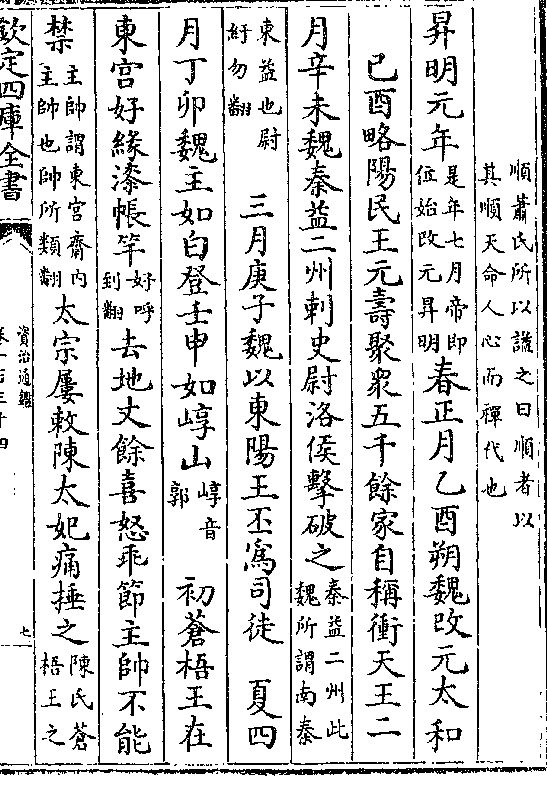 順蕭氏所以諡之曰順者以
其順天命人心而禪代也
昇明元年是年七月帝即位始改元昇明春正月乙酉朔魏改元太和
己酉略陽民王元壽聚衆五千餘家自稱衝天王二
月辛未魏秦益二州刺史尉洛侯擊破之秦益二州此魏所謂南秦
東益也尉紆勿翻 三月庚子魏以東陽王丕爲司徒 夏四
月丁卯魏主如白登壬申如崞山崞音郭 初蒼梧王在
東宮好緣漆帳竿好呼到翻去地丈餘喜怒乖節主帥不能
禁主帥謂東宮齋内主帥也帥所類翻太宗屢敕陳太妃痛捶之陳氏蒼梧王之
欽定四庫全書
資治通鑑
卷一百三十四
七